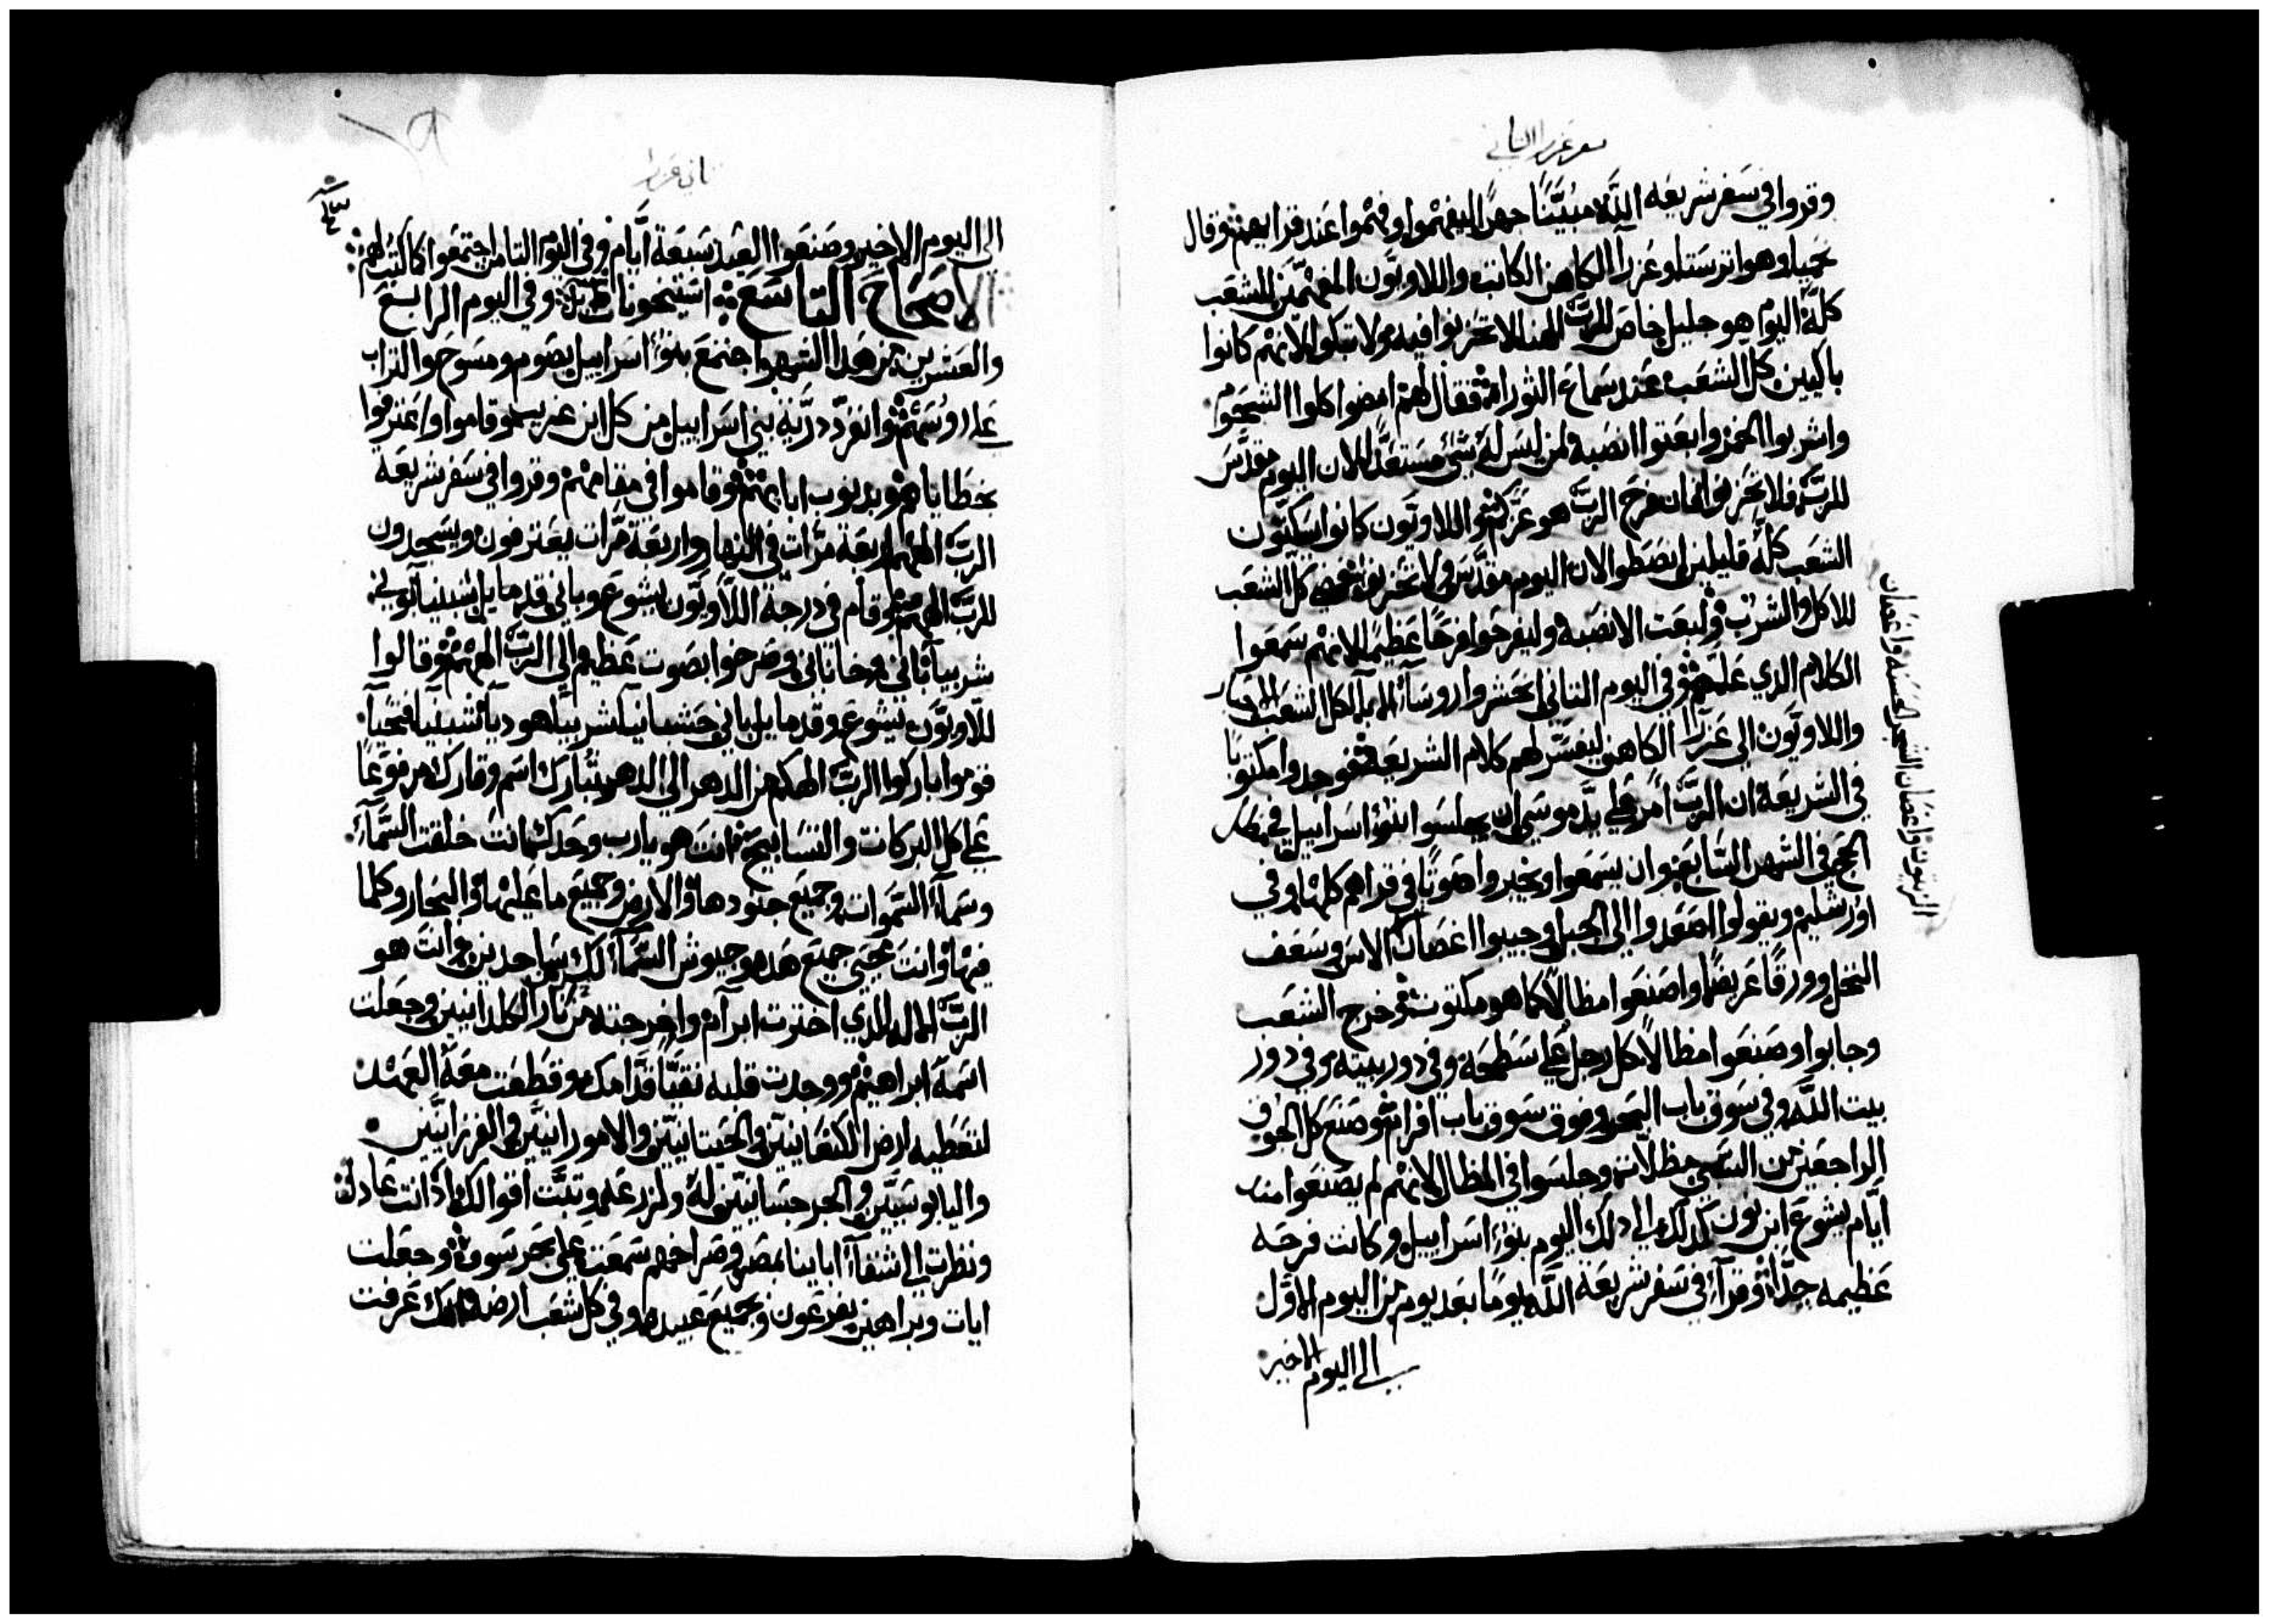 سفر عزرا الثاني
وقروا في سفر شريعه الله مبيّنًا جهرًا ليفهموا وفهموا عند قرايهم وقال
نحميا وهو اترستا وعزرا الكاهن الكاتب واللاويون المفهمين للشعب
كله اليوم هو جليل خاص للرب الهنا لا تحزنوا فيه ولا تبكوا لانهم كانوا
باكيين كل الشعب عند سماع الثوراة فقال لهم امضوا كلوا الشحوم
واشربوا الخمر وابعتوا انصبه لمن ليس له شي مستعدًا لان اليوم مقدّس
للرب فلا تحزنوا فان فرح الرب هو عزكم واللاويون كانوا يسكتون
الشعب كله قايلين انصطوا لان اليوم مقدّس ولا تحزنوا فمضى كل الشعب
للاكل والشرب وليبعت الانصبه وليفرحوا فرحًا عظيمًا لانهم سمعوا
الكلام الدي علمهم وفي اليوم التاني احتشروا روسآ الابا لكل الشعب الاحبار
واللاويون الى عزرا الكاهن ليفسّر لهم كلام الشريعة فوجدوا مكتوبا
في الشريعة ان الرب امر على يدّ موسى ان يجلسوا بنوا اسراييل في مظال
الحج في الشهر السابع وان يسمعوا ويخبروا صوتًا في قراهم كلها وفي
اورشليم ويقولوا اصعدوا الى الجبل وجيبوا اغصان الاس وسعف
النخل وورقًا عريضًا واصنعوا مظالاً كما هو مكتوب وخرج الشعب
وجابوا وصنعوا مظالاً كل رجل على سطحه وفي دور بيته وفي دور
بيت الله وفي سوق باب وفوق سوق باب افرام وصنع كل الجوق
الراجعين من السبي مظلات وجلسوا في المظال لانهم لم يصنعوا منذ
ايّام يشوع ابن نون كدلك الى دلك اليوم بنوا اسراييل وكانت فرحه
عظيمه جدًّا وقرآ في سفر شريعة الله يومًا بعد يوم من اليوم الاوّل
الى اليوم الاخير
الزيتون واغصان الشجر الحسنه واغصان
ثاني عزرا
الى اليوم الاخير وصنعوا العيد سبعة ايّام وفي اليوم التامن اجتمعوا كما كتب لهم
الاصحاح التاسع وفي اليوم الرابع
والعشرين من هدا الشهر اجتمع بنوا اسراييل بصوم ومسوح والتراب
على روسهم وانفرد دريّة بني اسراييل من كل ابن غريب وقاموا واعترفوا
بخطاياهم وبدنوب ابايهم وقاموا في مقامهم وقروا في سفر شريعه
الرب الههم اربعة مرّات في النهار واربعة مرّات يعترفون ويسجدون
للرب الههم وقام في درجة اللاويّون يشوع وباني قدمايل شبنيا بوني
شربيا باني وخاناني وصرخوا بصوت عظيم الى الرب الههم وقالوا
اللاويّون يشوع وقدمايل باني حشبانيا شربيا هوديا شبنيا فتحيا
قوموا باركوا الرب الهكم من الدهر الى الدهر يتبارك اسم وقارك مرفوعًا
على كل البركات والتسابيح انت هو يارب وحدك انت خلقت السمآء
وسمآء السموات وجميع جنودها والارض وجميع ما عليها والبحار وكلما
فيها وانت محيي جميع هده وجيوش السمآء لك ساجدين وانت هو
الرب الاله الدي اخترت ابرام واخرجته من نار الكلدانيين وجعلت
اسمه ابراهيم ووجدت قلبه نقيًّا قدّامك وقطعت معه العهد
لتعطيه ارض الكنعانيين والحيتانيين والامورانيين والفرزانيين
واليابوسيين والجرجسانيين له ولزرعه وتبّت اقوالك اد انت عادل
ونظرت الى اشفآء اباينا بمصر وصراخهم سمعت على بحر سوف وجعلت
ايات وبراهين بفرعون وبجميع عبيده وفي كل شعب ارضه لانك عرفت